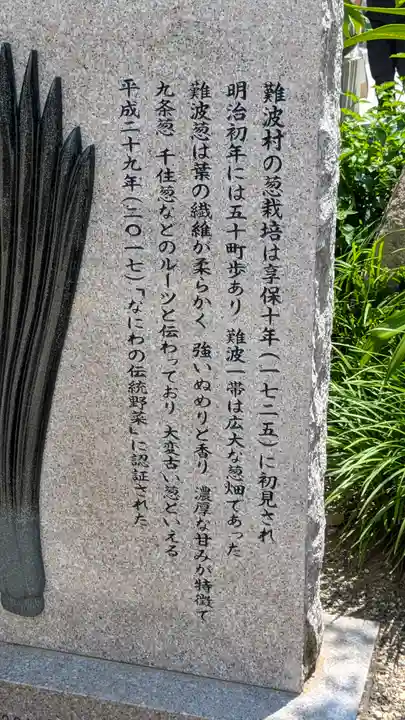 難波村の葱栽培は享保十年(一七二五)に初見され
明治初年には五十町歩あり 難波一帯は広大な葱畑であった
難波葱は葉の繊維が柔らかく 強いぬめりと香り 濃厚な甘みが特徴で
九条葱、千住葱などのルーツと伝わっており 大変古い葱といえる
平成二十九年(二〇一七)「なにわの伝統野菜」に認証された